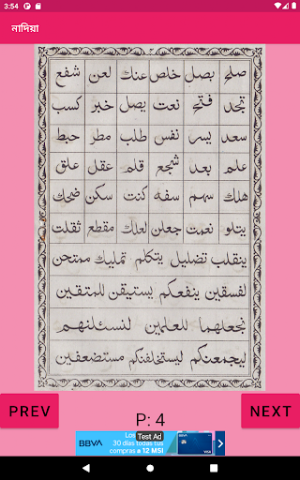 3:54
নাদিয়া
صلح بصل خلص عنك لعن شفع
تجد فتح نعت يصل خبر كسب
سعد يسر نفس طلب مطر حبط
علم بعد شجع قلم عقل علق
هلك سهم سفه كنت سكن ضحك
يتلو نعمت جعلن لعلك مقطع ثقلت
ينقلب تضليل يتكلم تمليك ممتحن
لفسقين ينفعكم يستيقن للمتقين
نجعلهما للعلمين لنسئلنهم
ليجمعنكم ليستخلفنكم مستضعفين
PREV
P: 4
NEXT
BBVA
Test Ad
30 días todas tus
compras a 12 MSI